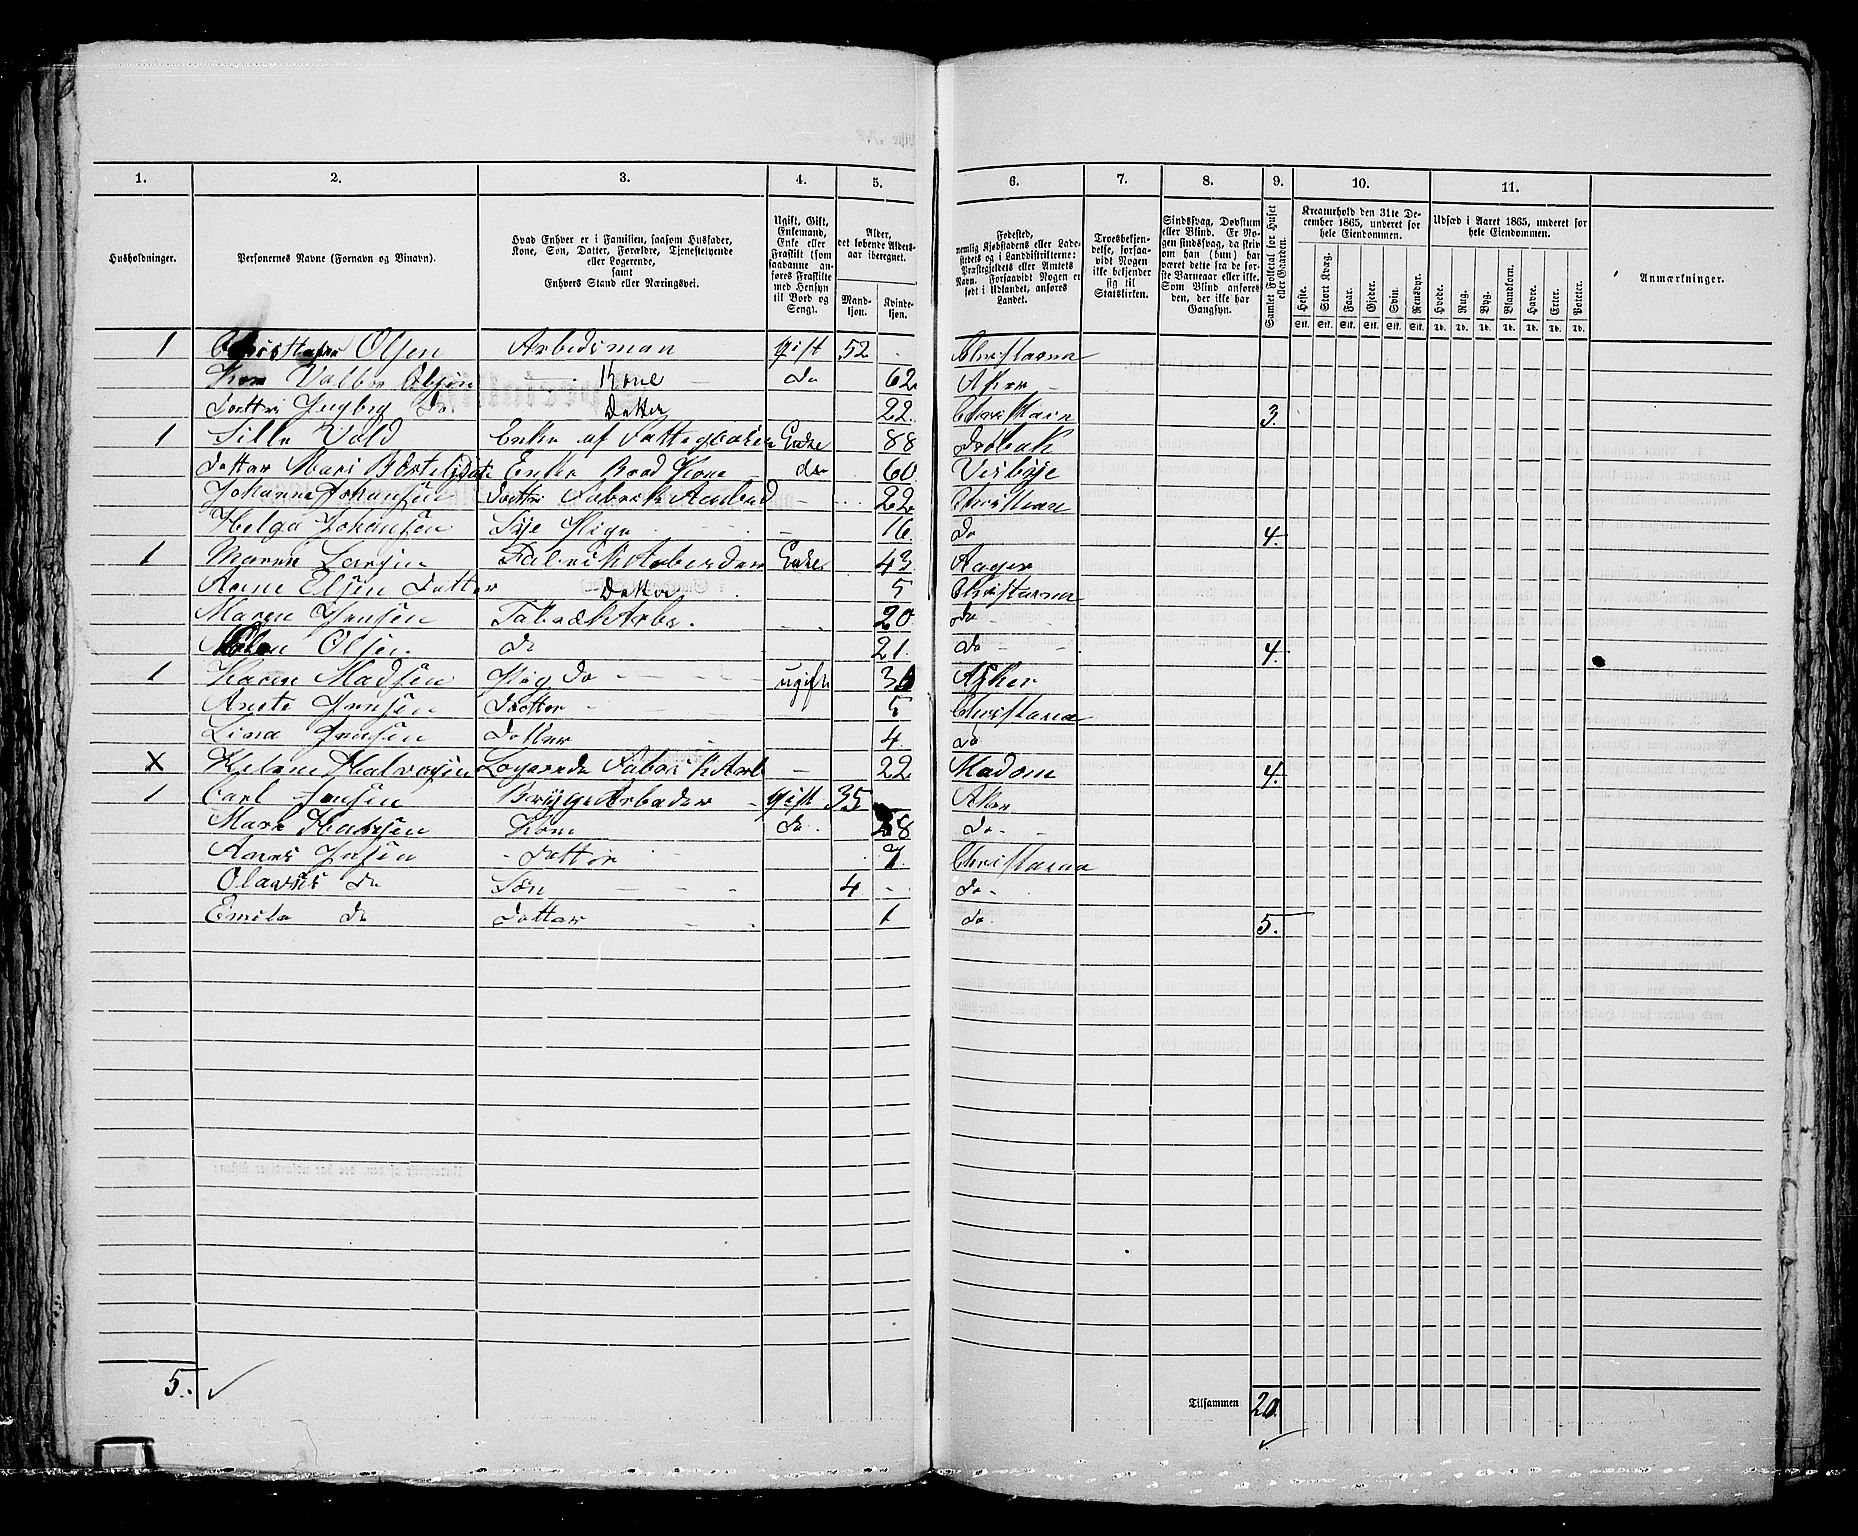 1. 2. 3. 4. 5. 6. 7. 8. 9. 10. 11.
Husholdninger.
Personernes Navne (Fornavn og Binavn).
Hvad Enhver er i Familien, saasom Husfader, Kone, Søn, Datter, Forældre, Tjenestetyende eller Logerende, samt Enhvers Stand eller Næringsvei.
Ugift, Gift, Enkemand, Enke eller Fraskilt (som saadanne anføres Fraskilte med Hensyn til Bord og Seng).
Alder, det løbende Alders-aar iberegnet.
Mand-kjøn. Kvinde-kjøn.
Fødested, nemlig Kjøbstadens eller Ladestedets og i Landdistrikterne: Præstegjeldets eller Amtets Navn. Forsaavidt Nogen er født i Udlandet, anføres Landet.
Troesbekjendelse, forsaavidt Nogen ikke bekjender sig til Statskirken.
Sindssvag, Døvstum eller Blind. Er Nogen sindssvag, da skriv om han (hun) har været dette fra de første Barneaar eller ikke. Som Blind anføres den, der ikke har Gangsyn.
Samlet Folketal for Huset eller Gaarden.
Kreaturhold den 31te December 1865, underet for hele Eiendommen.
Heste. Stort Kvæg. Faar. Gjeder. Svin. Rensdyr.
Stk. Stk. Stk. Stk. Stk. Stk.
Udsæd i Aaret 1865, underet for hele Eiendommen.
Hvede. Rug. Byg. Blandkorn. Havre. Erter. Poteter.
Td. Td. Td. Td. Td. Td. Td.
Anmærkninger.
1 Christofer Olsen Arbedsman gift 52 Christiania
Kone Valbor Olsen Kone do 62 Aker
Datter Ingbeg do Datter 22 3.
1 Sille Vold Enke af Enke 88 Drøbak
Datter Mari Enke Kone do 60
Johanne Johansen Datter Fabrik 22
Helga Johansen Sye Pige 16 do 4.
1 Maren Larsen Enke 43 Aager
Anne Olsen Datter Datter 5 Christiania
Maren Jensen Arb. 20 do
Olsen do 21. do 4.
1 Karen Madsen do ugift Asker
Anete Jensen Datter 5 Christiania
Lina Jensen Datter 4 do
X Halvorsen Logerende Fabrik Arb 22 4.
1 Carl Jensen Brygge Arbeder gift 35 Aker
Mari Kone do do
Jensen Datter 7 Christiania
Olavus do Søn 4 do
Emile do Datter 1 do 5.
5. ✓ Tilsammen 20.